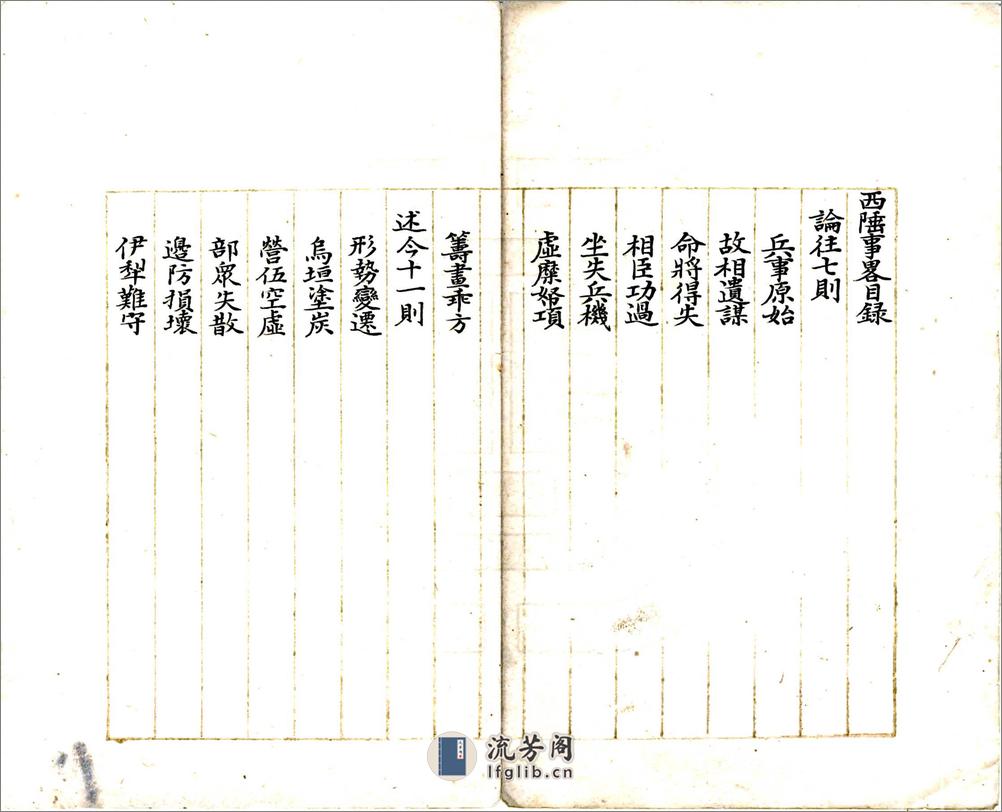 西陲事畧目録
論往七則
兵事原始
故相遺謀
命將得失
相臣功過
坐失兵機
虛糜帑項
籌畫乖方
述今十一則
形勢變遷
烏垣塗炭
營伍空虛
部眾失散
邊防損壞
伊犁難守
流芳阁
lfglib.cn